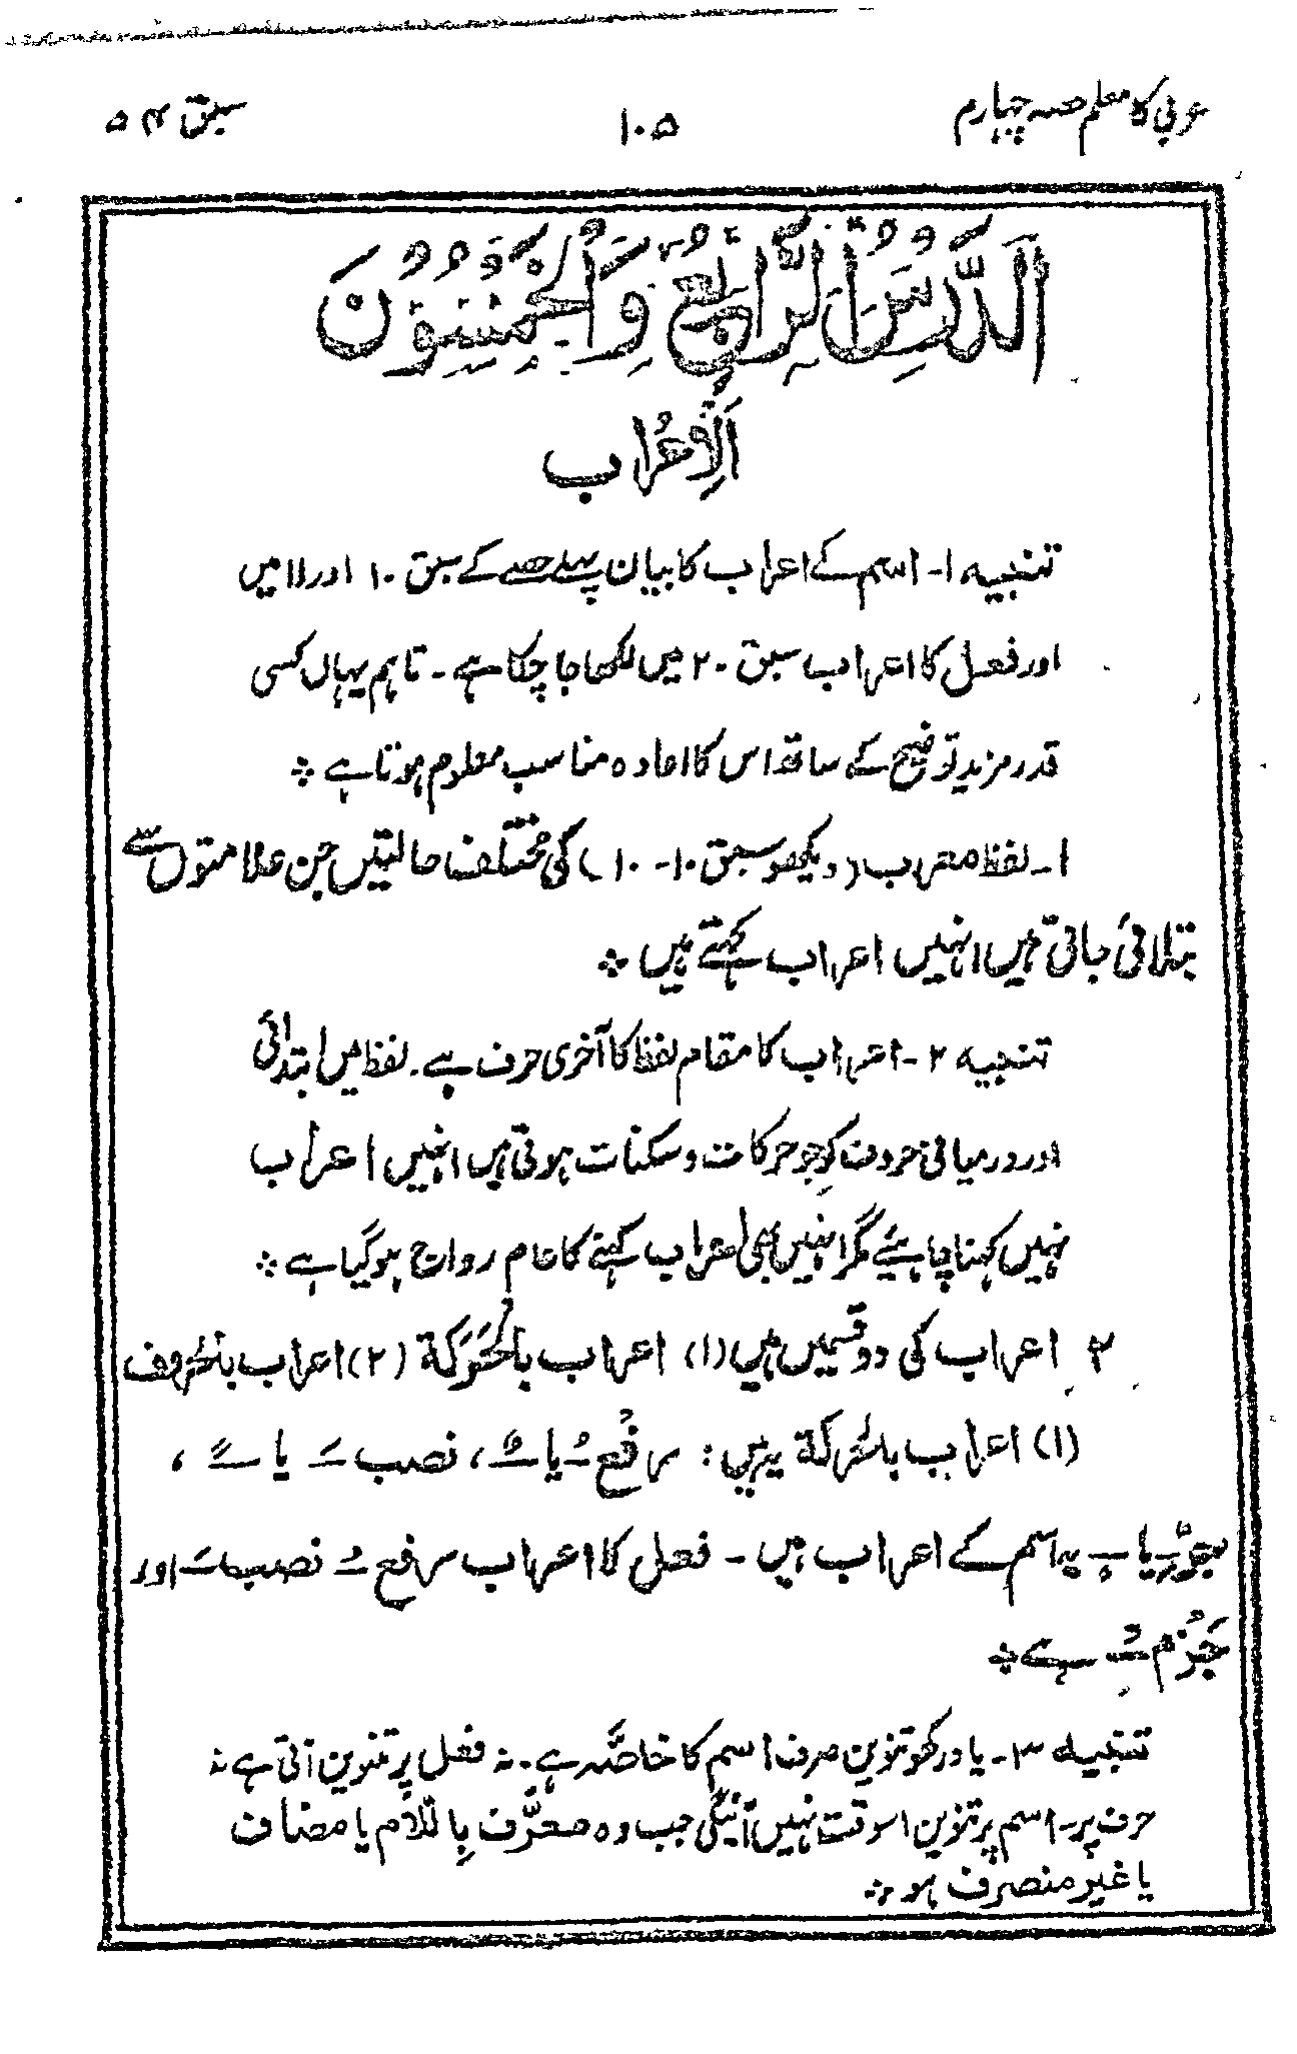 عربی کا معلم حصہ چہارم
۱۰۵
سبق ۵۴
اَلدَّرْسُ الرَّابِعُ وَالْخَمْسُوْنَ
اَلْاِعْرَاب
تنبیہ ۱۔ اسم کے اعراب کا بیان پہلے حصے کے سبق ۱۰ اور ۱۱ میں
اور فعل کا اعراب سبق ۲۰ میں لکھا جا چکا ہے۔ تاہم یہاں کسی
قدر مزید توضیح کے ساتھ اس کا اعادہ مناسب معلوم ہوتا ہے ÷
۱۔ لفظ معرب (دیکھو سبق ۱۰-۱۰) کی مختلف حالتیں جن علامتوں سے
بتلائی جاتی ہیں انہیں اعراب کہتے ہیں ÷
تنبیہ ۲۔ اعراب کا مقام لفظ کا آخری حرف ہے۔ لفظ میں ابتدائی
اور درمیانی حروف کو جو حرکات و سکنات ہوتی ہیں انہیں اعراب
نہیں کہنا چاہئیے مگر انہیں بھی اعراب کہنے کا عام رواج ہوگیا ہے ÷
۲ اعراب کی دو قسمیں ہیں (۱) اعراب بالحَرَکَة (۲) اعراب بالحُروف
(۱) اعراب بالحَرکة یہ ہیں: رفْع ـُ یا ـٌ ، نصب ـَ یا ـً ،
جرّ ـِ یا ـٍ یہ اسم کے اعراب ہیں۔ فعل کا اعراب رفع ـُ نصب ـَ اور
جَزْم ـْ ہے ÷
تنبیہ ۳۔ یاد رکھو تنوین صرف اسم کا خاصّہ ہے۔ نہ فعل پر تنوین آتی ہے نہ
حرف پر۔ اسم پر تنوین اسوقت نہیں آئیگی جب وہ معرَّف بِاللّام یا مضاف
یا غیر منصرف ہو ÷